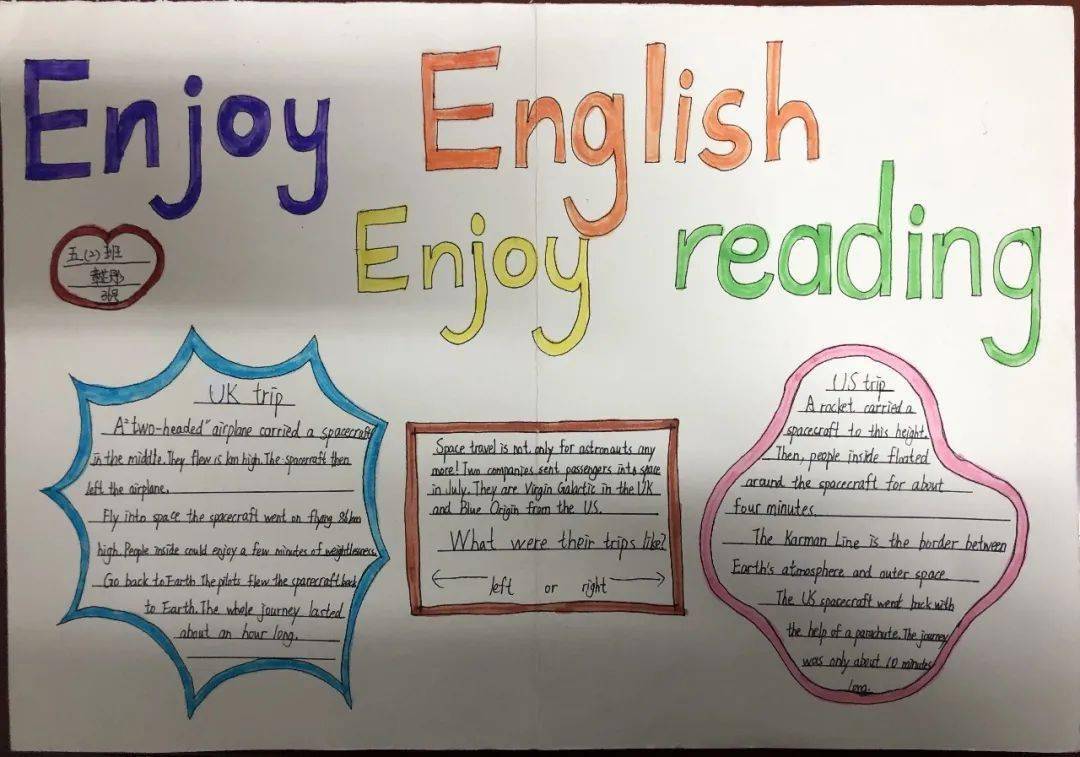 Enjoy English
Enjoy reading
五(2)班
36号
UK trip
A "two-headed" airplane carried a spacecraft
in the middle. They flew is km high. The spacecraft then
left the airplane.
Fly into space the spacecraft went on flying 86km
high. People inside could enjoy a few minutes of weightlessness
Go back to Earth The pilots flew the sparecraft back
to Earth. The whole journey lasted
about an hour long.
Space travel is not only for astronauts any
more! Two companies sent passengers into space
in July. They are Virgin Galartic in the UK
and Blue Origin from the US.
What were their trips like?
left or right
US trip
A rocket carried a
spacecraft to this height.
Then, people inside floated
around the spacecraft for about
four minutes.
The Karman Line is the border between
Earth's atmosphere and outer space
The US spacecraft went back with
the help of a parachute. The journey
was only about 10 minutes
long.